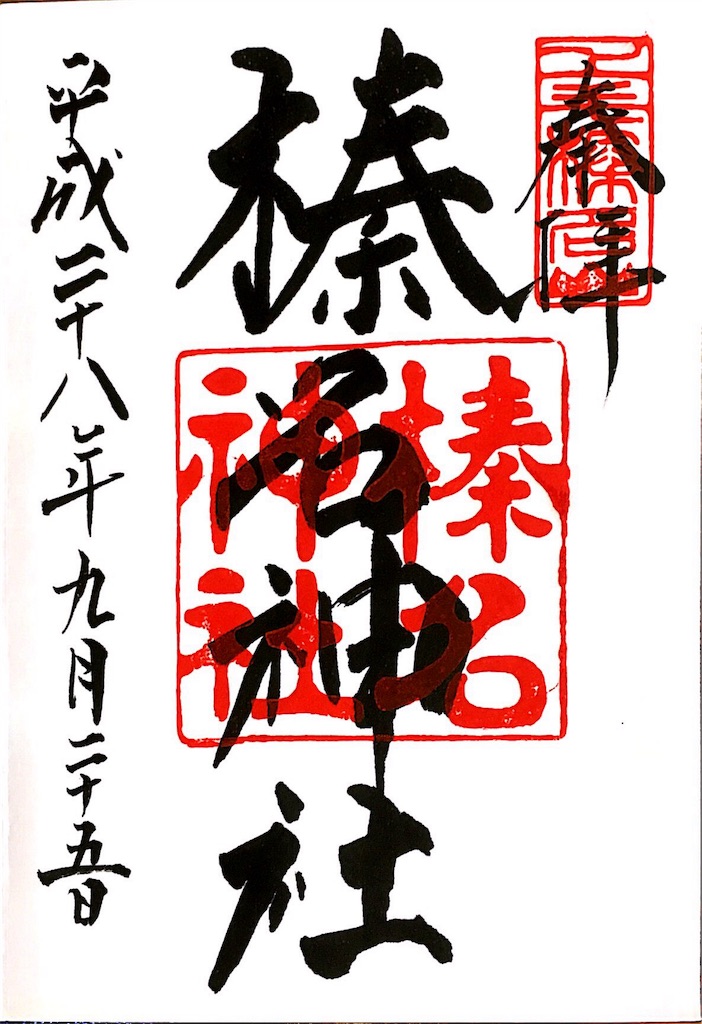 奉拝
上毛榛名山
榛名神社
榛名
神社
平成二十八年九月二十五日